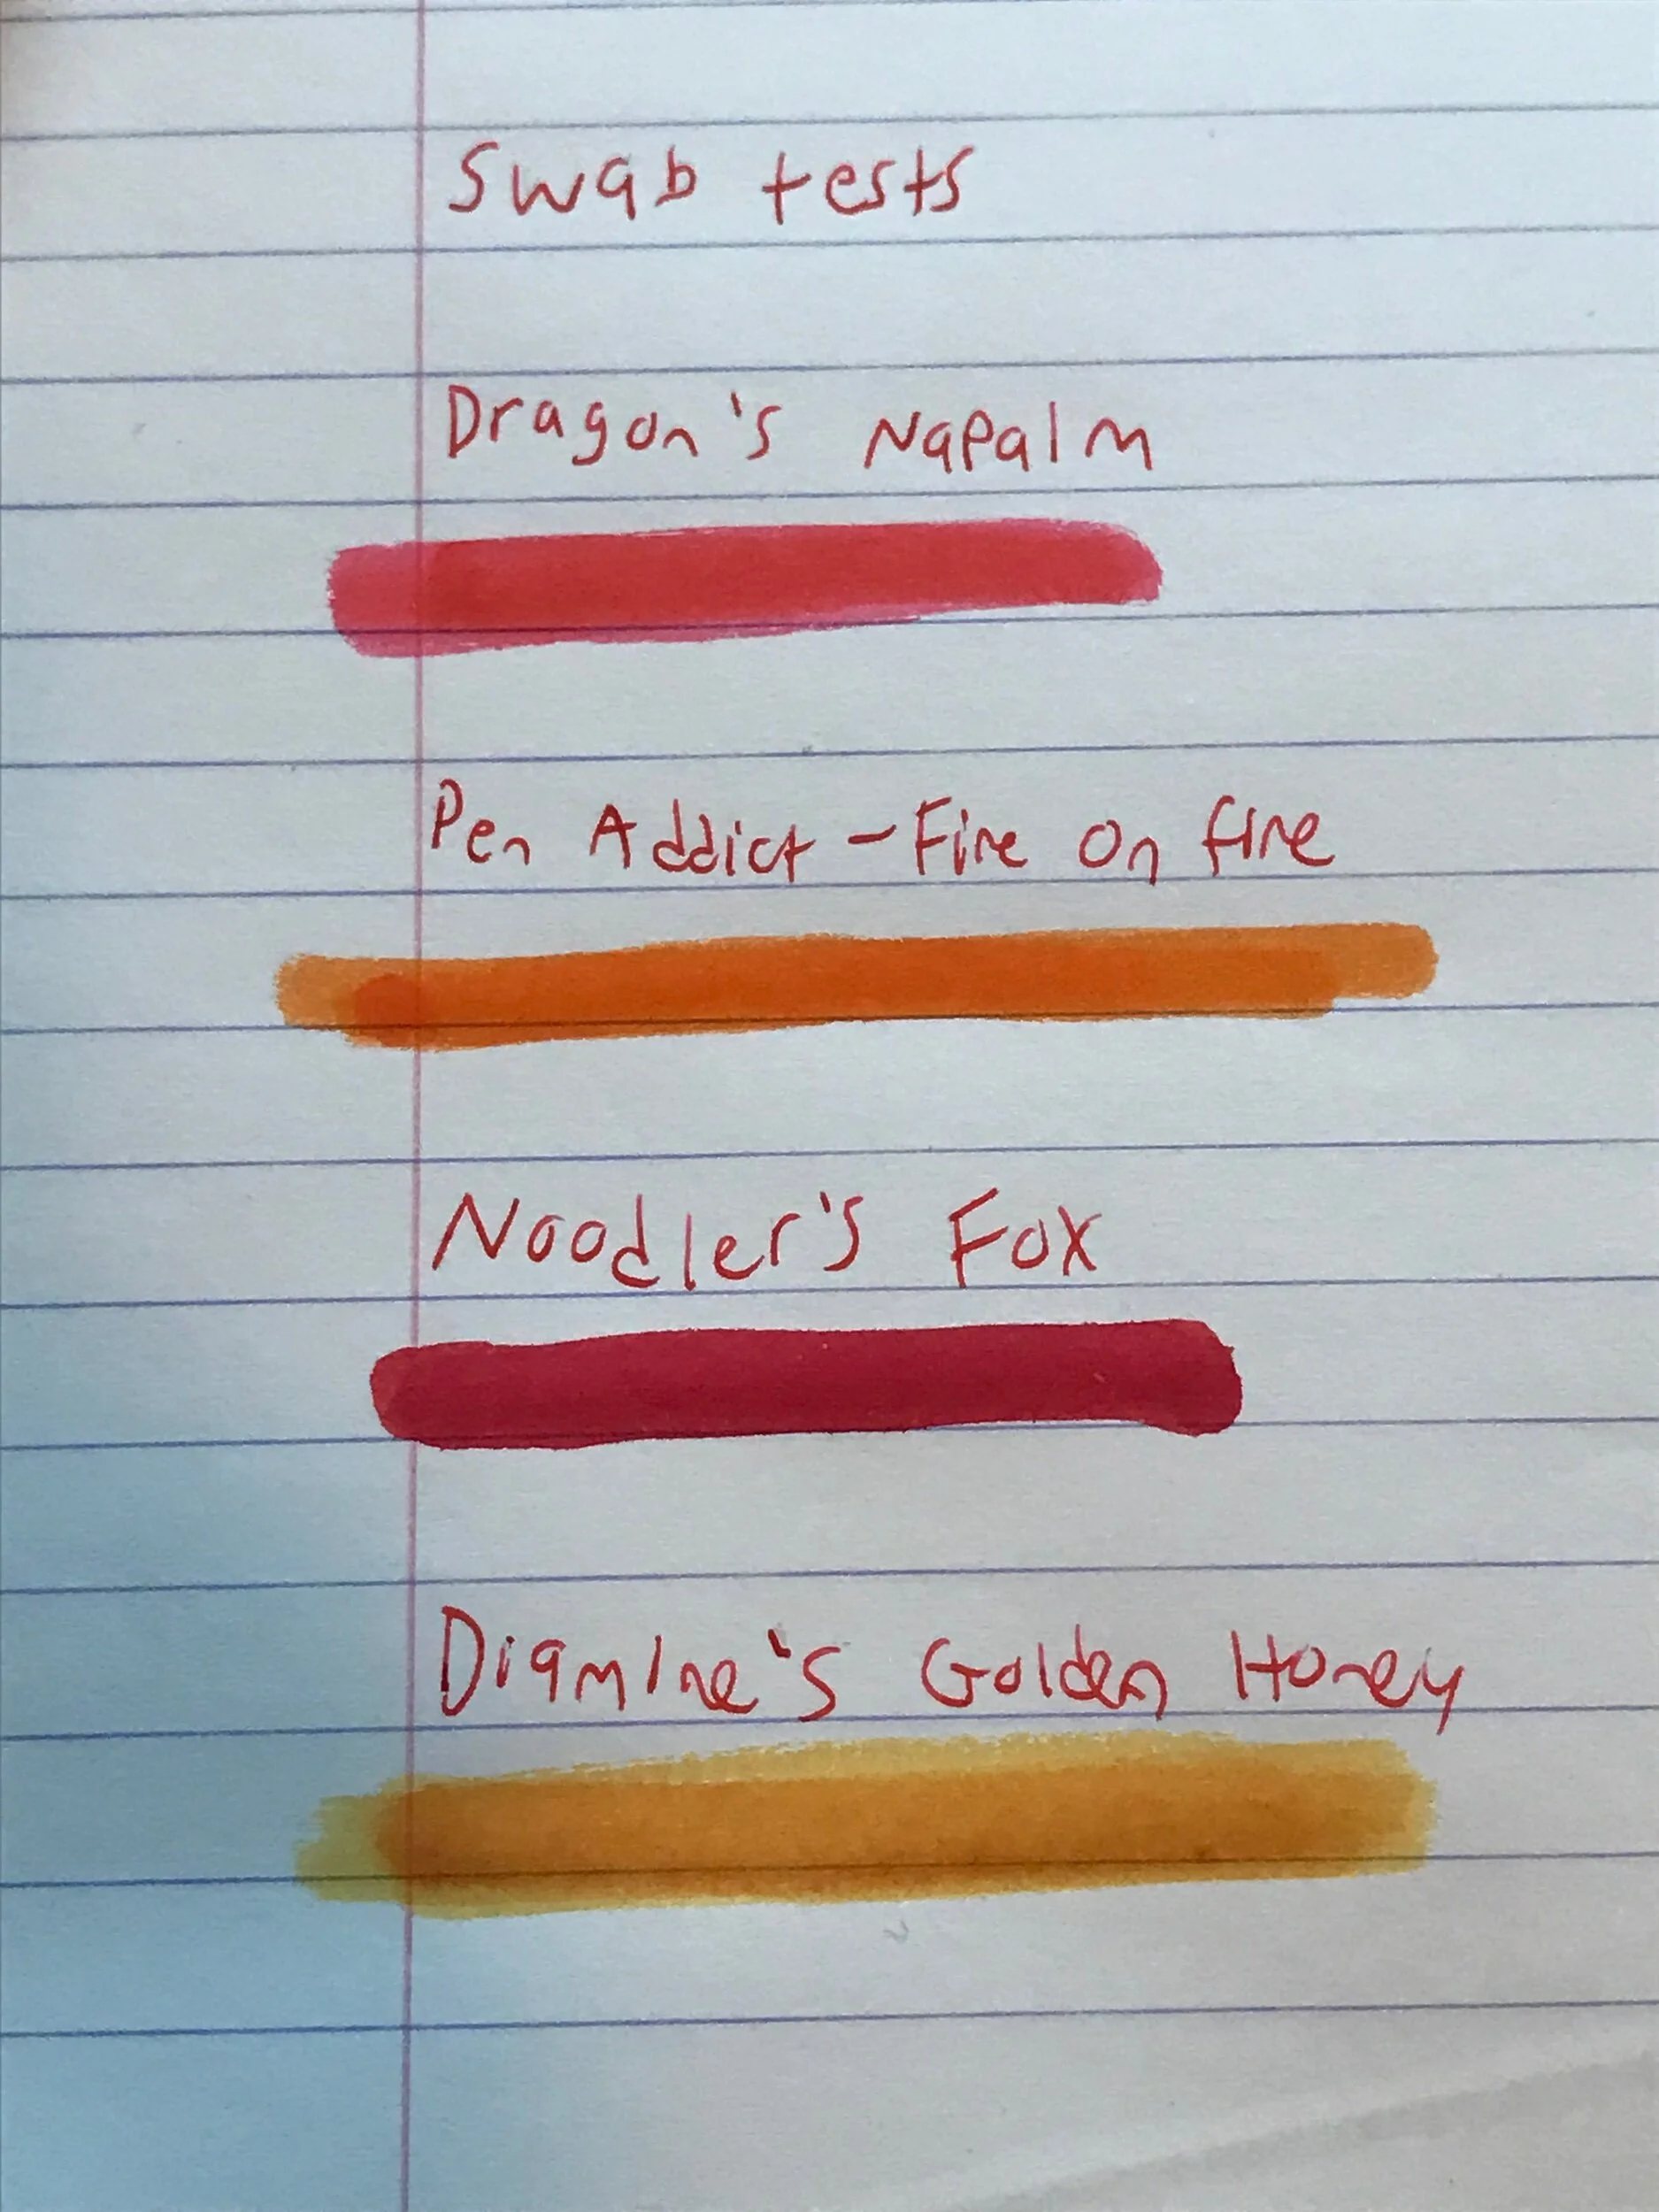 Swab tests
Dragon's Napalm
Pen Addict - Fire on fire
Noodler's Fox
Diamine's Golden Honey